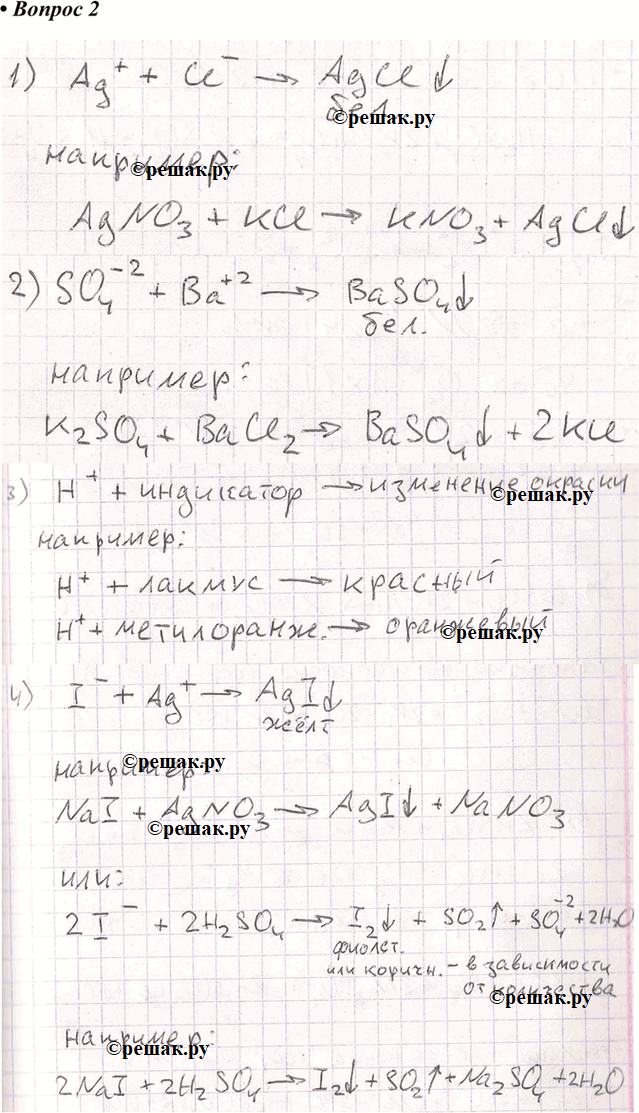 • Вопрос 2
1) Ag⁺ + Cl⁻ → AgCl↓
бел.
©решак.ру
например:
©решак.ру
AgNO₃ + KCl → KNO₃ + AgCl↓
2) SO₄⁻² + Ba⁺² → BaSO₄↓
бел.
например:
K₂SO₄ + BaCl₂ → BaSO₄↓ + 2KCl
3) H⁺ + индикатор → изменение окраски
©решак.ру
например:
H⁺ + лакмус → красный
H⁺ + метилоранж. → оранжевый
©решак.ру
4) I⁻ + Ag⁺ → AgI↓
жёлт
©решак.ру
например
NaI + AgNO₃ → AgI↓ + NaNO₃
©решак.ру
или:
2I⁻ + 2H₂SO₄ → I₂↓ + SO₂↑ + SO₄⁻² + 2H₂O
фиолет.
или коричн. – в зависимости
от количества
©решак.ру
например:
©решак.ру
2NaI + 2H₂SO₄ → I₂↓ + SO₂↑ + Na₂SO₄ + 2H₂O